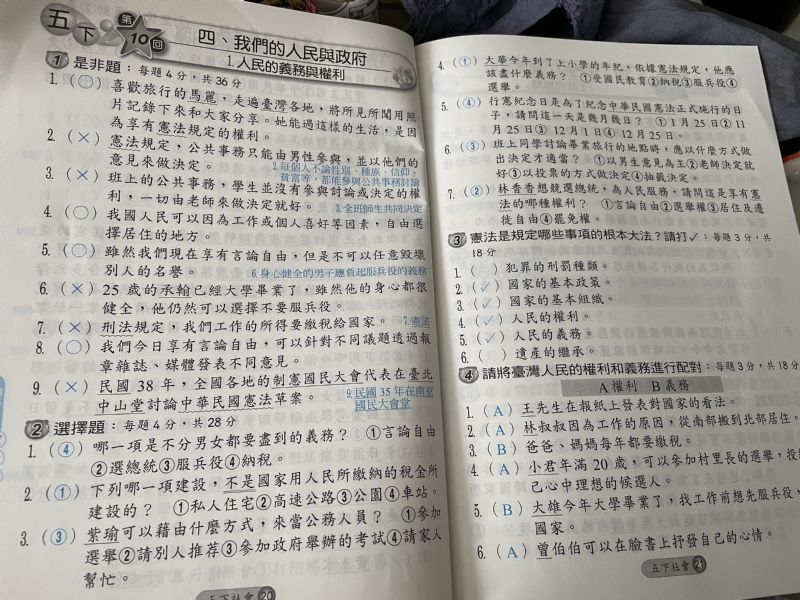 五下 第10回 四、我們的人民與政府
1.人民的義務與權利
1 是非題：每題4分，共36分
1.（○）喜歡旅行的馬麗，走過臺灣各地，將所見所聞用照
片記錄下來和大家分享。她能過這樣的生活，是因
為享有憲法規定的權利。
2.（×）憲法規定，公共事務只能由男性參與，並以他們的
意見來做決定。
2.每個人不論性別、種族、信仰、
貧富等，都能參與公共事務討論
3.（×）班上的公共事務，學生並沒有參與討論或決定的權
利，一切由老師來做決定就好。
3.全班師生共同決定
4.（○）我國人民可以因為工作或個人喜好等因素，自由選
擇居住的地方。
5.（○）雖然我們現在享有言論自由，但是不可以任意毀壞
別人的名譽。
6.身心健全的男子應負起服兵役的義務
6.（×）25歲的承翰已經大學畢業了，雖然他的身心都很
健全，他仍然可以選擇不要服兵役。
7.（×）刑法規定，我們工作的所得要繳稅給國家。
7.憲法
8.（○）我們今日享有言論自由，可以針對不同議題透過報
章雜誌、媒體發表不同意見。
9.（×）民國38年，全國各地的制憲國民大會代表在臺北
中山堂討論中華民國憲法草案。
9.民國35年在南京
國民大會堂
2 選擇題：每題4分，共28分
1.（④）哪一項是不分男女都要盡到的義務？ ①言論自由
②選總統③服兵役④納稅。
2.（①）下列哪一項建設，不是國家用人民所繳納的稅金所
建設的？ ①私人住宅②高速公路③公園④車站。
3.（③）紫瑜可以藉由什麼方式，來當公務人員？ ①參加
選舉②請別人推荐③參加政府舉辦的考試④請家人
幫忙。
五下社會 20
4.（①）大華今年到了上小學的年紀，依據憲法規定，他應
該盡什麼義務？ ①受國民教育②納稅③服兵役④
選舉。
5.（④）行憲紀念日是為了紀念中華民國憲法正式施行的日
子，請問這一天是幾月幾日？ ①1月25日②11
月25日③12月1日④12月25日。
6.（③）班上同學討論畢業旅行的地點時，應以什麼方式做
出決定才適當？ ①以男生意見為主②老師決定就
好③以投票的方式做決定④抽籤決定。
7.（②）林香香想競選總統，為人民服務，請問這是享有憲
法的哪種權利？ ①言論自由②選舉權③居住及遷
徙自由④罷免權。
3 憲法是規定哪些事項的根本大法？請打✓：每題3分，共
18分
1.（ ）犯罪的刑罰種類。
2.（✓）國家的基本政策。
3.（✓）國家的基本組織。
4.（✓）人民的權利。
5.（✓）人民的義務。
6.（ ）遺產的繼承。
4 請將臺灣人民的權利和義務進行配對：每題3分，共18分
A權利 B義務
1.（A）王先生在報紙上發表對國家的看法。
2.（A）林叔叔因為工作的原因，從南部搬到北部居住。
3.（B）爸爸、媽媽每年都要繳稅。
4.（A）小君年滿20歲，可以參加村里長的選舉，投
己心中理想的候選人。
5.（B）大雄今年大學畢業了，找工作前想先服兵役，
國家。
6.（A）曾伯伯可以在臉書上抒發自己的心情。
五下社會 21